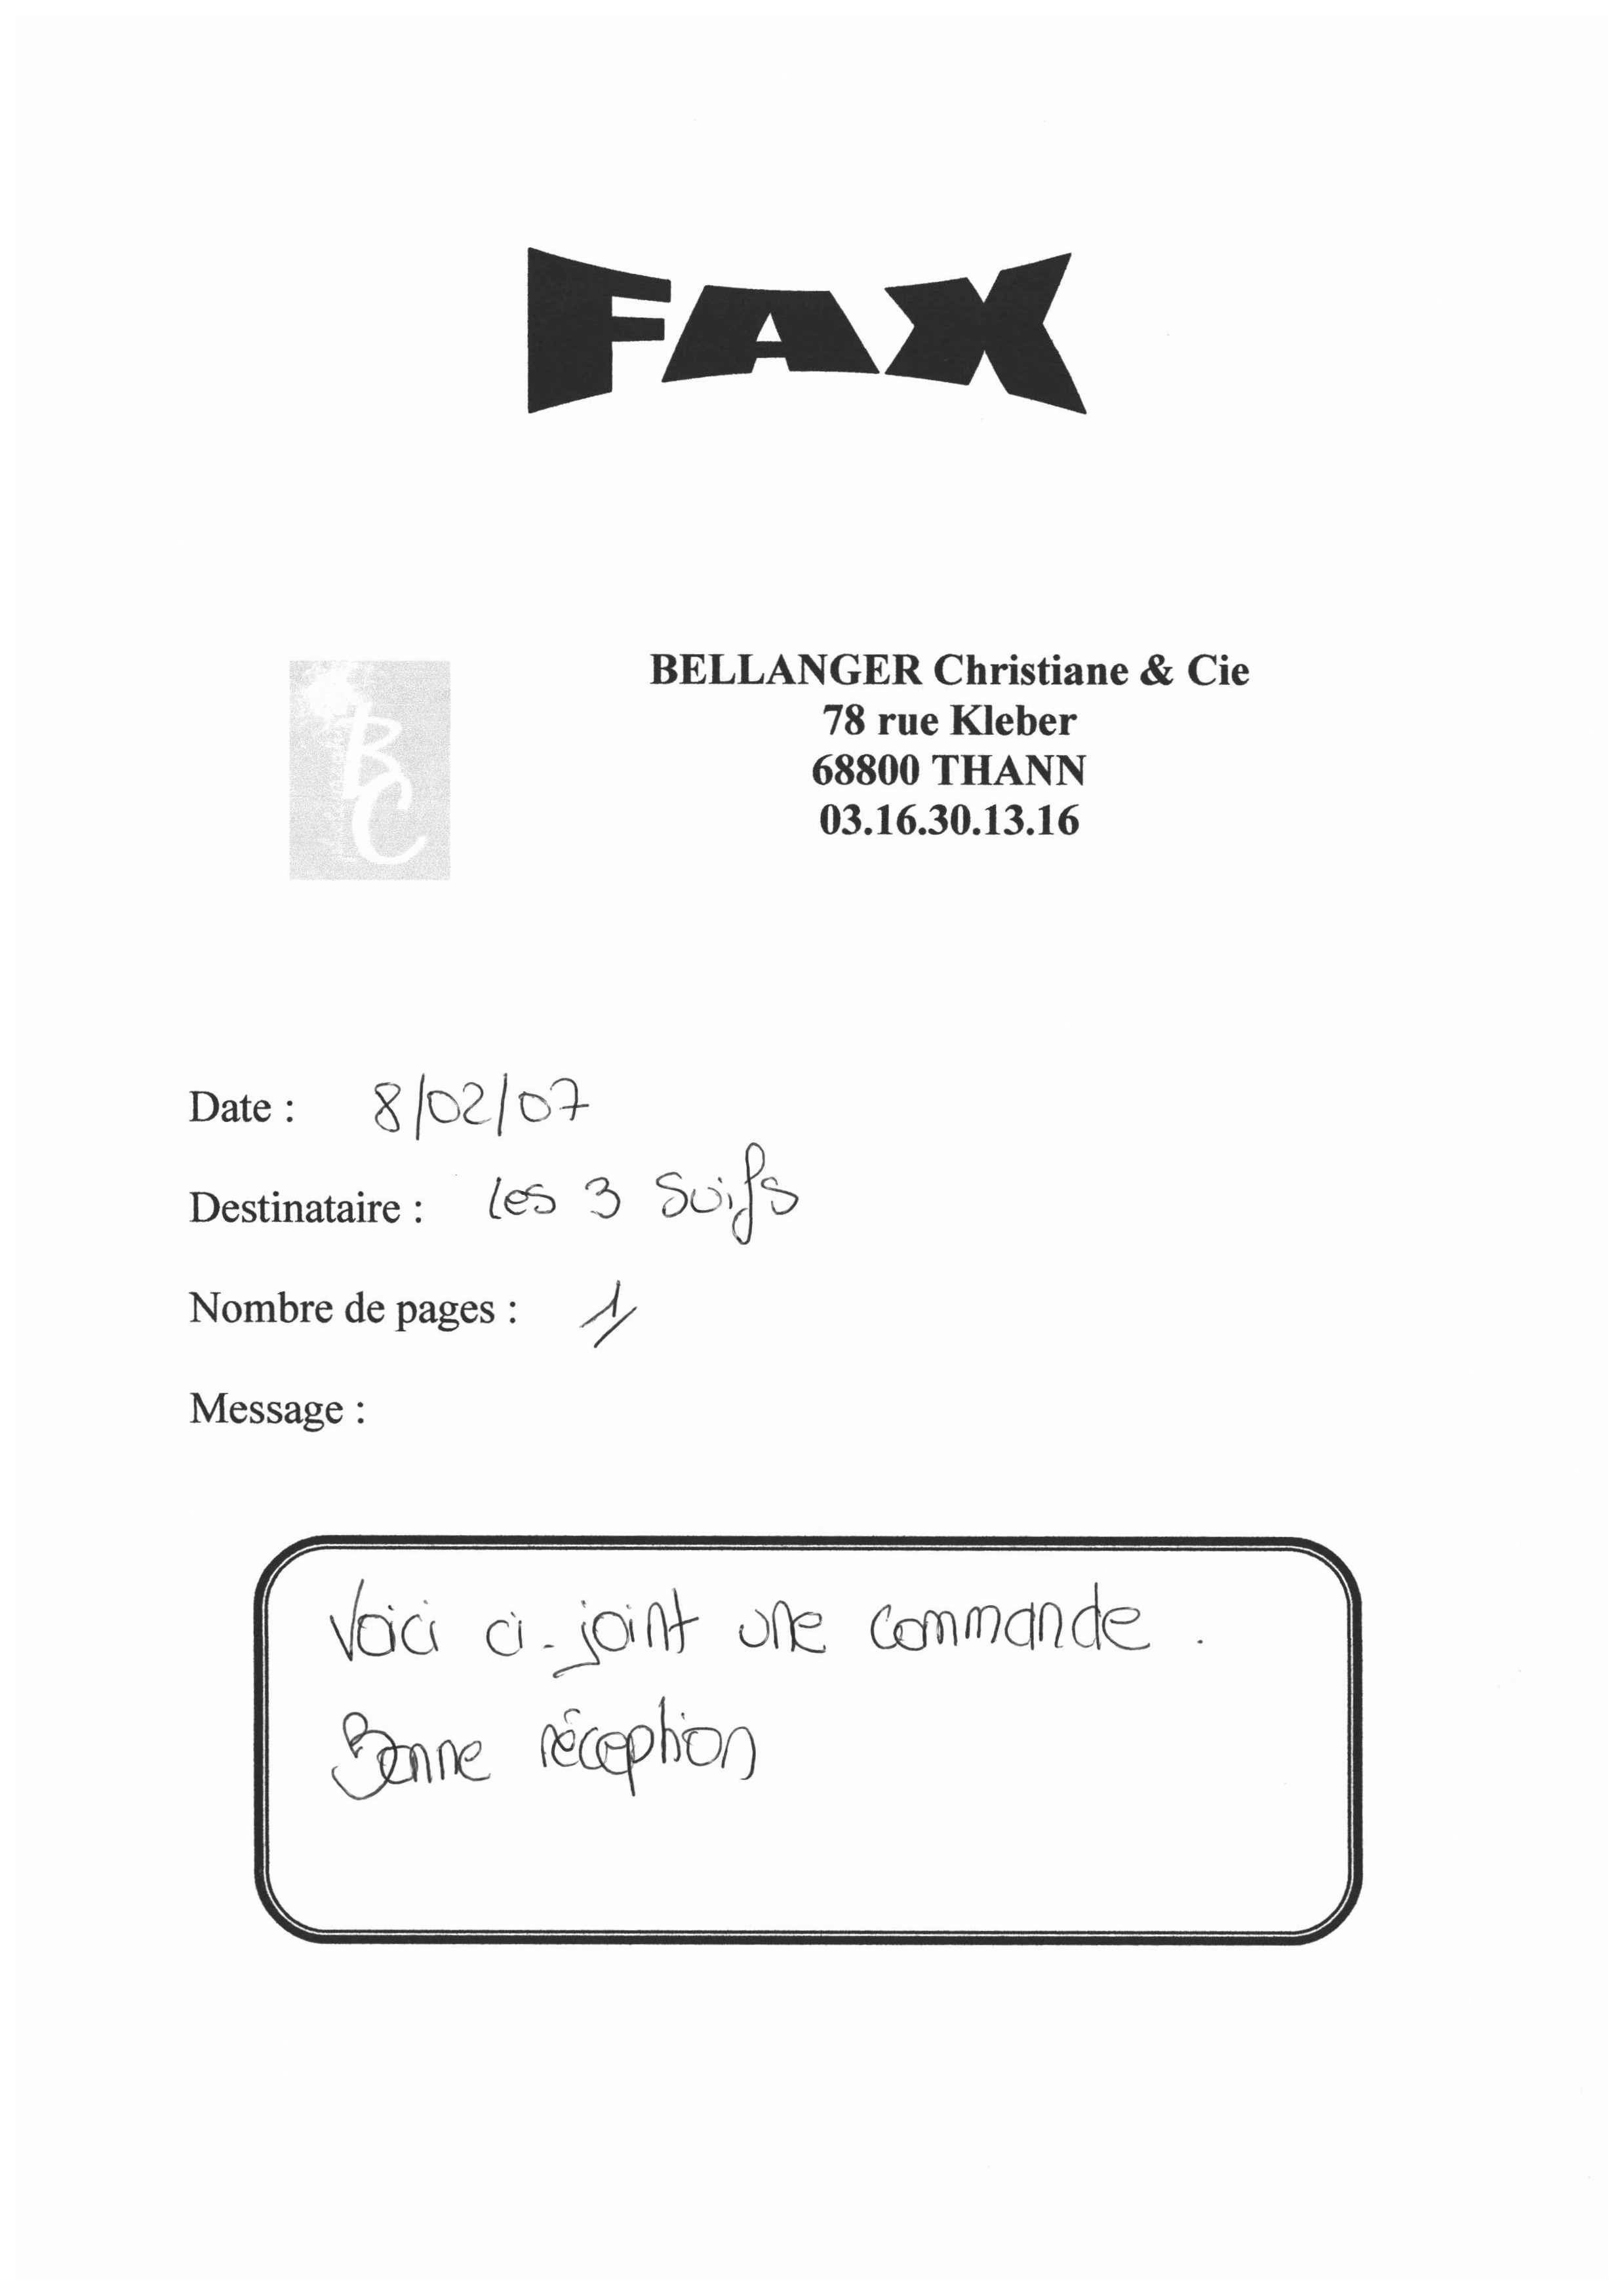 FAX
BC
BELLANGER Christiane & Cie
78 rue Kleber
68800 THANN
03.16.30.13.16
Date : 8/02/07
Destinataire : les 3 Suifs
Nombre de pages : 1
Message :
Voici ci-joint une commande.
Bonne réception